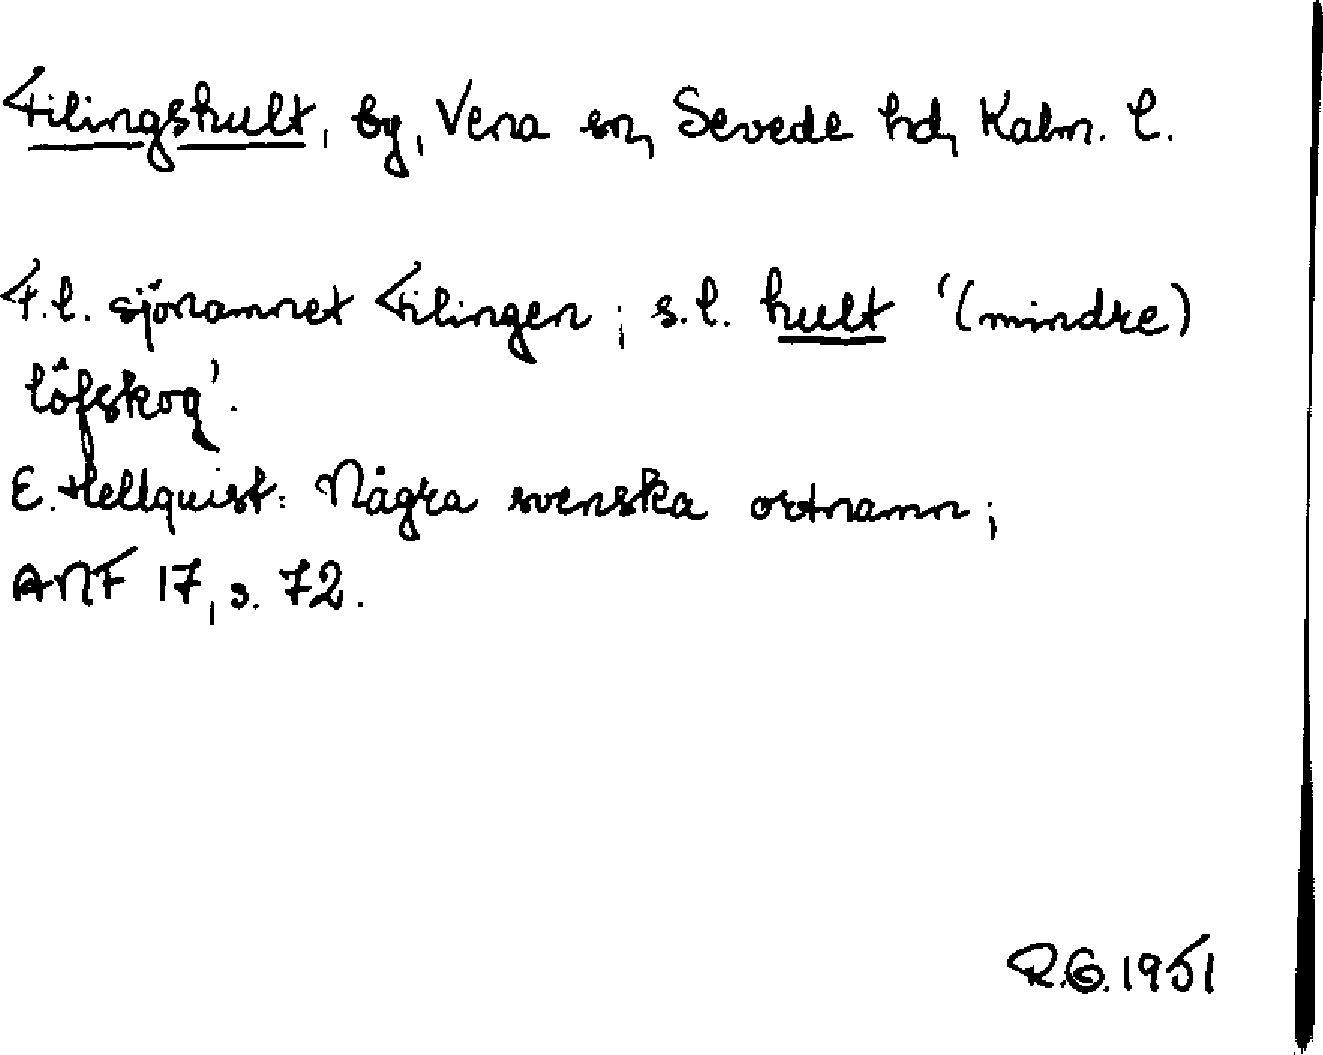 Filingshult, by, Vena sn, Sevede hd, Kalm. l.
F.l. sjönamnet Filingen; s.l. hult '(mindre)
löfskog'.
E. Hellquist: Några svenska ortnamn;
ANF 17, s. 72.
R.G. 1951